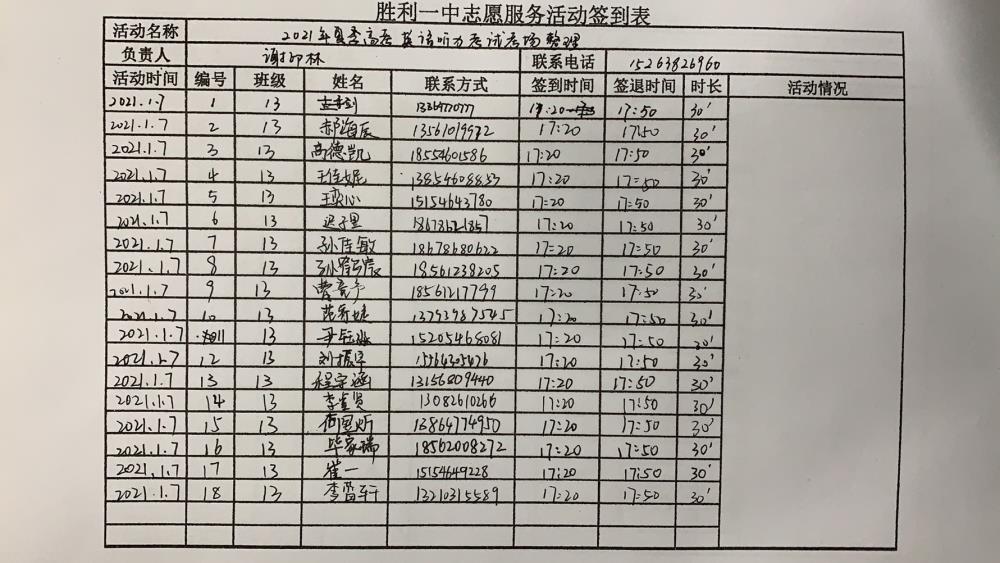 胜利一中志愿服务活动签到表
活动名称 2021年夏季高考英语听力考试考场整理
负责人 谢印林 联系电话 15263826960
活动时间 编号 班级 姓名 联系方式 签到时间 签退时间 时长 活动情况
2021.1.7 1 13 17:20 17:50 30'
2021.1.7 2 13 郝海辰 13561019972 17:20 17:50 30'
2021.1.7 3 13 高德凯 18554601586 17:20 17:50 30'
2021.1.7 4 13 王佳妮 13854608853 17:20 17:50 30'
2021.1.7 5 13 王奕心 15154643780 17:20 17:50 30'
2021.1.7 6 13 迟子墨 17:20 17:50 30'
2021.1.7 7 13 孙佳敏 18678680622 17:20 17:50 30'
2021.1.7 8 13 18561238205 17:20 17:50 30'
2021.1.7 9 13 18561217799 17:20 17:50 30'
2021.1.7 10 13 13793987545 17:20 17:50 30'
2021.1.7 11 13 15205468081 17:20 17:50 30'
2021.1.7 12 13 刘振华 17:20 17:50 30'
2021.1.7 13 13 程宇涵 13156809440 17:20 17:50 30'
2021.1.7 14 13 13082610266 17:20 17:50 30'
2021.1.7 15 13 13864774950 17:20 17:50 30'
2021.1.7 16 13 毕家瑞 18562008272 17:20 17:50 30'
2021.1.7 17 13 崔一 15154649228 17:20 17:50 30'
2021.1.7 18 13 13210315589 17:20 17:50 30'